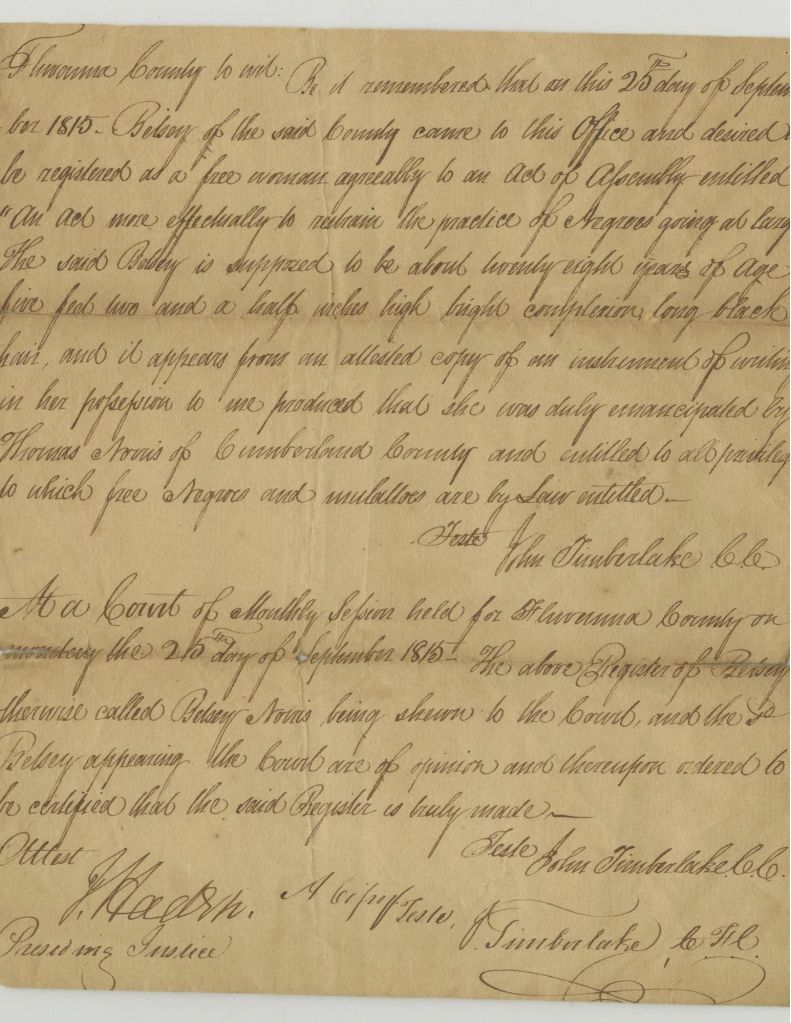 Fluvanna County to wit: Be it remembered that on this 25th day of Septem
ber 1815 - Betsey of the said County came to this Office and desired
be registered as a free woman agreeably to an Act of Assembly entitled
"An Act more effectually to restrain the practice of Negroes going at larg
The said Betsey is supposed to be about twenty eight years of Age
five feet two and a half inches high bright complexion, long black
hair, and it appears from an attested copy of an instrument of writin
in her possession to me produced that she was duly emancipated by
Thomas Norris of Cumberland County and entitled to all privileg
to which free Negroes and mulattoes are by Law entitled —
Teste John Timberlake C.C.
At a Court of Monthly Session held for Fluvanna County on
monday the 25th day of September 1815 - The above Register of Betsey
therwise called Betsey Norris being shewn to the Court, and the sd
Betsey appearing the Court are of opinion and thereupon ordered to
be certified that the said Register is truly made —
Teste John Timberlake C.C.
Attest
J. Haden. A Copy Teste,
Presiding Justice J. Timberlake C.F.C.